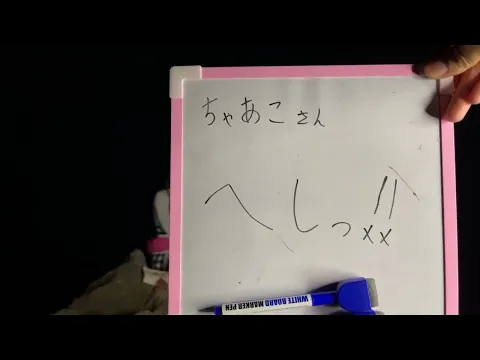 ちゃあこさん
へしっ!!
WHITE BOARD MARKER PEN